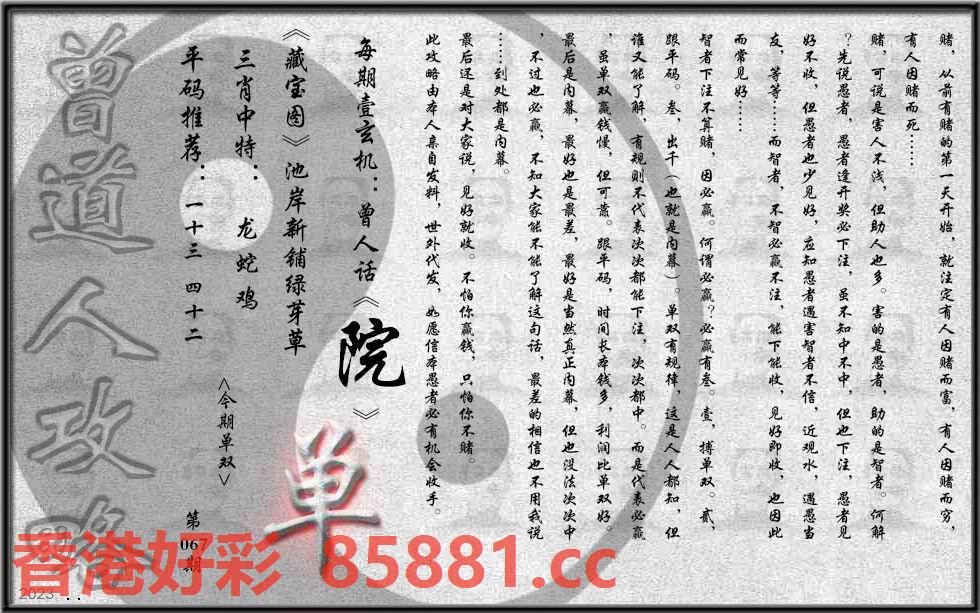 赌，从前有赌的第一天开始，就注定有人因赌而富，有人因赌而穷，
有人因赌而死……
赌，可说是害人不浅，但助人也多。害的是愚者，助的是智者。何解
？先说愚者，愚者逢开奖必下注，虽不知中不中，但也下注，愚者见
好不收，但愚者也少见好，应知愚者遇害智者不信，近观水，遇愚当
友，等等……而智者，不智必赢不注，能下能收，见好即收，也因此
而常见好……
智者下注不算赌，因必赢。何谓必赢？必赢有叁。壹，搏单双。贰，
跟平码。叁，出千（也就是内幕）。单双有规律，这是人人都知，但
谁又能了解，有规则不代表次次都能下注，次次都中。而是代表必赢
，虽单双赢钱慢，但可靠。跟平码，时间长本钱多，利润比单双好。
最后是内幕，最好也是最差，最好是当然真正内幕，但也没法次次中
，不过也必赢，不知大家能不能了解这句话，最差的相信也不用我说
……到处都是内幕。
最后还是对大家说，见好就收。不怕你赢钱，只怕你不赌。
此攻略由本人亲自发料，世外代发，如愿信本愚者必有机会收手。
每期壹玄机：曾人话《院》
《藏宝图》池岸新铺绿芽草
三肖中特：龙蛇鸡
平码推荐：一十三 四十二
<今期单双>
单
第067期
曾道人攻略
香港好彩 85881.cc
2023